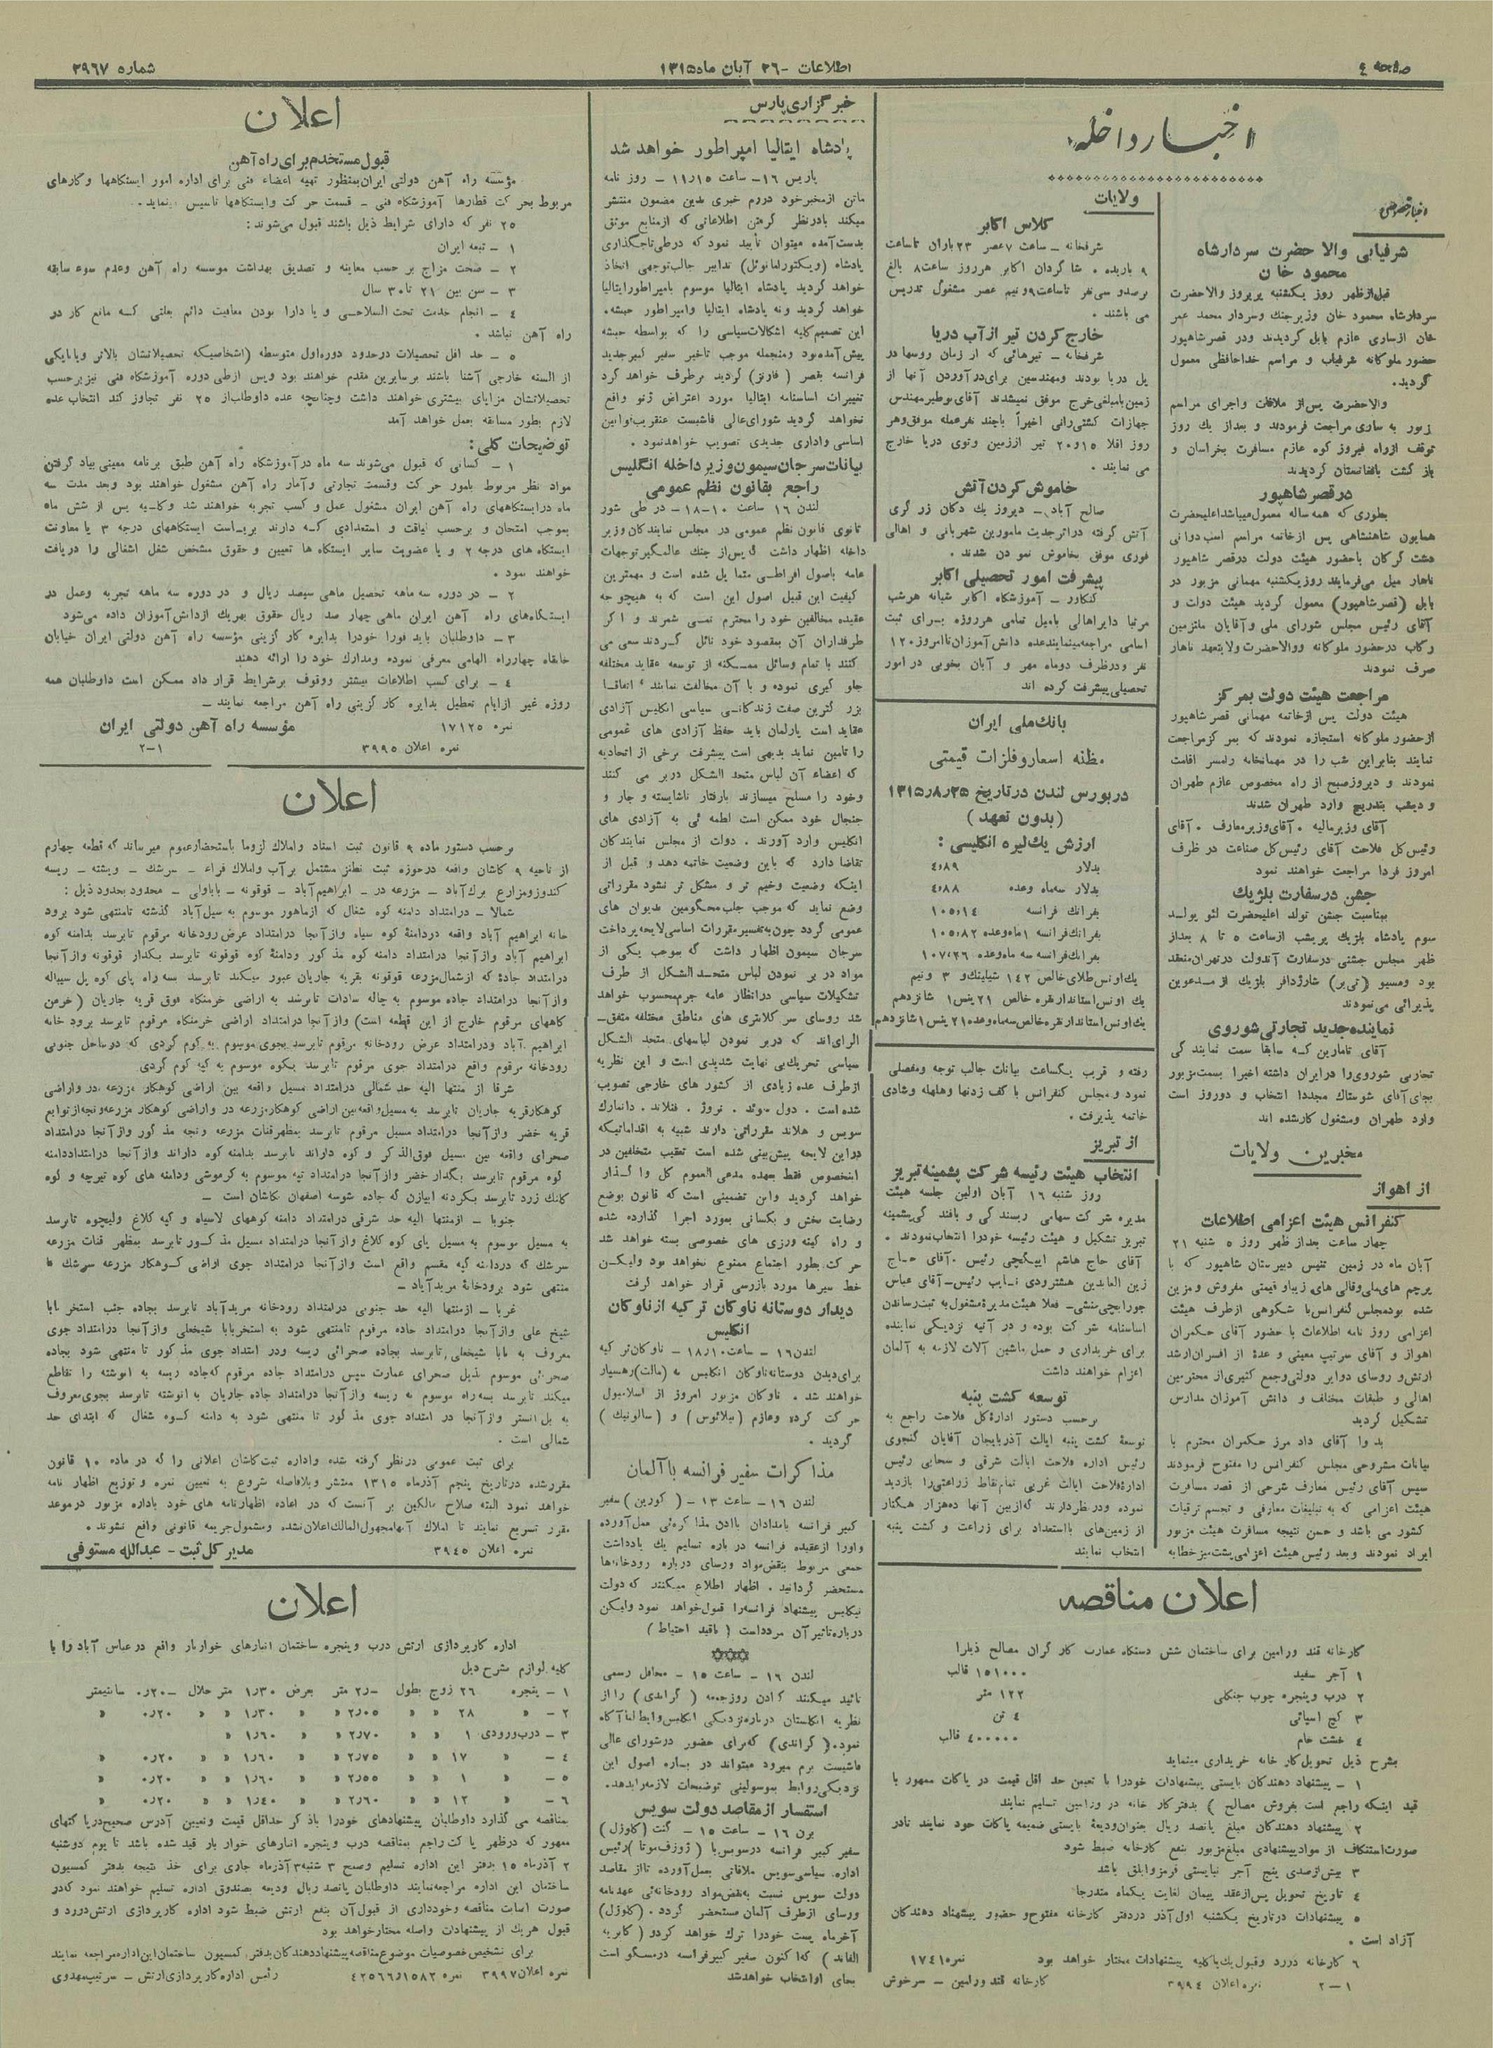 صفحه ٤
اطلاعات - ۲۶ آبان ماه ۱۳۱۵
شماره ۲۹۶۷
اخبار داخله
اخبار خصوصی
شرفیابی والا حضرت سردار شاه
محمود خان
قبل از ظهر روز یکشنبه پریروز والا حضرت
سردار شاه محمود خان وزیر جنگ و سردار محمد عمر
خان از ساری عازم بابل گردیدند و در قصر شاهپور
حضور ملوکانه شرفیاب و مراسم خدا حافظی معمول
گردید.
والا حضرت پس از ملاقات و اجرای مراسم
مزبور به ساری مراجعت فرمودند و بعد از یك روز
توقف از راه فیروز کوه عازم مسافرت بخراسان و
باز گشت بافغانستان گردیدند
در قصر شاهپور
بطوری که همه ساله معمول میباشد اعلیحضرت
همایون شاهنشاهی پس از خاتمه مراسم اسب دوانی
دشت گرگان با حضور هیئت دولت در قصر شاهپور
ناهار میل میفرمایند روز یکشنبه مهمانی مزبور در
بابل (قصر شاهپور) معمول گردید هیئت دولت و
آقای رئیس مجلس شورای ملی و آقایان ملتزمین
رکاب در حضور ملوکانه و والا حضرت ولایتعهد ناهار
صرف نمودند
مراجعت هیئت دولت بمرکز
هیئت دولت پس از خاتمه مهمانی قصر شاهپور
از حضور ملوکانه استجازه نمودند که بمرکز مراجعت
نمایند بنابر این شب را در مهمانخانه رامسر اقامت
نمودند و دیروز صبح از راه مخصوص عازم طهران
و دیشب بتدریج وارد طهران شدند
آقای وزیر مالیه . آقای وزیر معارف . آقای
رئیس کل فلاحت آقای رئیس کل صناعت در ظرف
امروز فردا مراجعت خواهند نمود
جشن در سفارت بلژیك
بمناسبت جشن تولد اعلیحضرت لئو پولد
سوم پادشاه بلژیك پریشب از ساعت ۵ تا ۸ بعد از
ظهر مجلس جشنی در سفارت آندولت در تهران منعقد
بود و مسیو (تی بر) شارژدافر بلژیك از مدعوین
پذیرائی می نمودند
نماینده جدید تجارتی شوروی
آقای تامارین که سابقا سمت نمایند گی
تجارتی شوروی را در ایران داشته اخیرا بسمت مزبور
بجای آقای شوستاك مجددا انتخاب و دو روز است
وارد طهران و مشغول کار شده اند
مخبرین ولایات
از اهواز
کنفرانس هیئت اعزامی اطلاعات
چهار ساعت بعد از ظهر روز ۵ شنبه ۲۱
آبان ماه در زمین تنیس دبیرستان شاهپور که با
پرچم های ملی و قالی های زیبا و قیمتی مفروش و مزین
شده بود مجلس کنفرانس با شکوهی از طرف هیئت
اعزامی روز نامه اطلاعات با حضور آقای حکمران
اهواز و آقای سرتیپ معینی و عدهٔ از افسران ارشد
ارتش و روسای دوایر دولتی و جمع کثیری از محترمین
اهالی و طبقات مختلف و دانش آموزان مدارس
تشکیل گردید
بدوا آقای داد مرز حکمران محترم با
بیانات مشروحی مجلس کنفرانس را مفتوح فرمودند
سپس آقای رئیس معارف شرحی از قصد مسافرت
هیئت اعزامی که به تبلیغات معارفی و تجسم ترقیات
کشور می باشد و حسن نتیجه مسافرت هیئت مزبور
ایراد نمودند و بعد رئیس هیئت اعزامی پشت میز خطابه
ولایات
کلاس اکابر
شرفخانه – ساعت ۷ عصر ۲۳ باران تا ساعت
۹ باریده . شا گردان اکابر هر روز ساعت ۸ بالغ
برصد و سی نفر تا ساعت ۹ و نیم عصر مشغول تدریس
می باشند .
خارج کردن تیر از آب دریا
شرفخانه – تیرهائی که از زمان روسها در
پل دریا بودند و مهندسین برای در آوردن آنها از
زمین با مبلغی خرج موفق نمیشدند آقای بوطیر مهندس
جهازات کشتی رانی اخیراً با چند نفر عمله موفق و هر
روز اقلا ۱۵ و ۲۰ تیر از زمین و توی دریا خارج
می نمایند .
خاموش کردن آتش
صالح آباد – دیروز یك دکان زر گری
آتش گرفته در اثر جدیت مامورین شهربانی و اهالی
فوری موفق بخاموش نمو دن شدند .
پیشرفت امور تحصیلی اکابر
کنگاور – آموزشگاه اکابر شبانه هر شب
مرتبا دایر اهالی با میل تمامی هر روزه برای ثبت
اسامی مراجعه مینمایند عده دانش آموزان تا امروز ۱۲۰
نفر و در ظرف دو ماه مهر و آبان بخوبی در امور
تحصیلی پیشرفت کرده اند
بانك ملی ایران
مظنه اسعار و فلزات قیمتی
در بورس لندن در تاریخ ۱۳۱۵٫۸٫۲۵
(بدون تعهد)
ارزش یك لیره انگلیسی :
بدلار ٤٫٨٩
بدلار سه ماه وعده ٤٫٨٨
بفرانك فرانسه ۱۰۵٫۱٤
بفرانك فرانسه ۱ ماه وعده ۱۰۵٫۸۲
بفرانك فرانسه سه ماه وعده ۱۰۷٫۲۶
یك اونس طلای خالص ۱٤۲ شیلینك و ۳ ونیم
یك اونس استاندار نقره خالص ۲۱ پنس ۱ شانزدهم
یك اونس استاندار نقره خالص سه ماه وعده ۲۱ پنس ۱ شانزدهم
رفته و قریب یکساعت بیانات جالب توجه و مفصلی
نمود و مجلس کنفرانس با کف زدنها و هلهله و شادی
خاتمه پذیرفت .
از تبریز
انتخاب هیئت رئیسه شرکت پشمینه تبریز
روز شنبه ۱۶ آبان اولین جلسه هیئت
مدیره شرکت سهامی ریسند گی و بافند گی پشمینه
تبریز تشکیل و هیئت رئیسه خود را انتخاب نمودند .
آقای حاج هاشم ایپکچی رئیس . آقای حاج
زین العابدین هشترودی نایب رئیس – آقای عباس
جورابچی منشی – فعلا هیئت مدیره مشغول به ثبت رساندن
اساسنامه شرکت بوده و در آتیه نزدیکی نماینده
برای خریداری و حمل ماشین آلات لازمه به آلمان
اعزام خواهند داشت
توسعه کشت پنبه
برحسب دستور ادارهٔ کل فلاحت راجع به
توسعهٔ کشت پنبه ایالت آذربایجان آقایان گنجوی
رئیس اداره فلاحت ایالت شرقی و سحابی رئیس
ادارهٔ فلاحت ایالت غربی تمام نقاط زراعتی را بازدید
نموده و در نظر دارند که از بین آنها ده هزار هگتار
از زمین های با استعداد برای زراعت و کشت پنبه
انتخاب نمایند
اعلان مناقصه
کارخانه قند ورامین برای ساختمان شش دستگاه عمارت کار گران مصالح ذیلرا
۱ آجر سفید ۱۵۱۰۰۰ قالب
۲ درب و پنجره چوب جنگلی ۱۲۲ متر
۳ گچ اسپائی ٤ تن
٤ خشت خام ٤٠٠٠٠٠ قالب
بشرح ذیل تحویل کار خانه خریداری مینماید
۱ – پیشنهاد دهندگان بایستی پیشنهادات خود را با تعیین حد اقل قیمت در پاکات ممهور با
قید اینکه راجع است بفروش مصالح ) بدفتر کار خانه در ورامین تسلیم نمایند
۲ پیشنهاد دهندگان مبلغ پانصد ریال بعنوان ودیعهٔ بایستی ضمیمه پاکات خود نمایند تا در
صورت استنکاف از مواد پیشنهادی مبلغ مزبور بنفع کارخانه ضبط شود
۳ بیش از صدی پنج آجر نبایستی قرمز و ابلق باشد
٤ تاریخ تحویل پس از عقد پیمان لغایت یکماه متدرجا
۵ پیشنهادات در تاریخ یکشنبه اول آذر در دفتر کارخانه مفتوح و حضور پیشنهاد دهندگان
آزاد است .
۶ کارخانه در رد و قبول یك یا کلیه پیشنهادات مختار خواهد بود نمره ۱۷٤۱
۱–۲ نمره اعلان ۳۹۹٤ کارخانه قند ورامین – سرخوش
خبرگزاری پارس
پادشاه ایتالیا امپراطور خواهد شد
پاریس ۱۶– ساعت ۱۱٫۱۵ – روز نامه
ماتن از مخبر خود در رم خبری بدین مضمون منتشر
میکند با در نظر گرفتن اطلاعاتی که از منابع موثق
بدست آمده میتوان تأیید نمود که در طی تاجگذاری
پادشاه (ویکتور امانوئل) تدابیر جالب توجهی اتخاذ
خواهد گردید پادشاه ایتالیا موسوم بامپراطور ایتالیا
خواهد گردید و نه پادشاه ایتالیا و امپراطور حبشه .
این تصمیم کلیه اشکالات سیاسی را که بواسطه حبشه
پیش آمده بود و منجمله موجب تاخیر سفیر کبیر جدید
فرانسه بقصر ( فارنز) گردید برطرف خواهد کرد
تغییرات اساسنامه ایتالیا مورد اعتراض ژنو واقع
نخواهد گردید شورای عالی فاشیست عنقریب قوانین
اساسی و اداری جدیدی تصویب خواهد نمود .
بیانات سرجان سیمون وزیر داخله انگلیس
راجع بقانون نظم عمومی
لندن ۱۶ ساعت ۱۰–۱۸ – در طی شور
ثانوی قانون نظم عمومی در مجلس نمایندگان وزیر
داخله اظهار داشت که پس از جنك عالمگیر توجهات
عامه باصول افراطی متمایل شده است و مهمترین
کیفیت این قبیل اصول این است که به هیچوجه
عقیده مخالفین خود را محترم نمی شمرند و اگر
طرفداران آن بمقصود خود نائل گردند سعی می
کنند با تمام وسائل ممکنه از توسعه عقاید مختلفه
جلو گیری نموده و با آن مخالفت نمایند ، اتفاقا
بزر گترین صفت زندگانی سیاسی انگلیس آزادی
عقاید است پارلمان باید حفظ آزادی های عمومی
را تامین نماید بدیهی است پیشرفت برخی از اتحادیه
که اعضاء آن لباس متحد الشکل در بر می کنند
و خود را مسلح میسازند با رفتار ناشایسته و جار و
جنجال خود ممکن است لطمه ئی به آزادی های
انگلیس وارد آورند . دولت از مجلس نمایندگان
تقاضا دارد که باین وضعیت خاتمه دهد و قبل از
اینکه وضعیت وخیم تر و مشکل تر نشود مقرراتی
وضع نماید که موجب جلب محکومین بدیوان های
عمومی گردد چون به تفسیر مقررات اساسی لایحه پرداخت
سرجان سیمون اظهار داشت که بموجب یکی از
مواد در بر نمودن لباس متحد الشکل از طرف
تشکیلات سیاسی در انظار عامه جرم محسوب خواهد
شد روسای سر کلانتری های مناطق مختلفه متفق–
الرای اند که در بر نمودن لباسهای متحد الشکل
سیاسی تحریك بی نهایت شدیدی است و این نظریه
از طرف عده زیادی از کشور های خارجی تصویب
شده است . دول سوئد . نروژ . فنلاند . دانمارك
سویس و هلاند مقرراتی دارند شبیه به اقداماتیکه
در این لایحه پیش بینی شده است تعقیب متخلفین در
اینخصوص فقط بعهده مدعی العموم کل واگذار
خواهد گردید و این تضمینی است که قانون بوضع
رضایت بخش و یکسانی بمورد اجرا گذارده شده
و راه کینه ورزی های خصوصی بسته خواهد شد
حرکت بطور اجتماع ممنوع نخواهد بود ولیکن
خط سیرها مورد بازرسی قرار خواهد گرفت
دیدار دوستانه ناوگان ترکیه از ناوگان
انگلیس
لندن ۱۶ – ساعت ۱۸٫۱۰ – ناوگان ترکیه
برای دیدن دوستانه ناوگان انگلیس به (مالت) رهسپار
خواهند شد . ناوگان مزبور امروز از اسلامبول
حرکت کرده و عازم (میلائوس) و (سالونیك)
گردید .
مذاکرات سفیر فرانسه با آلمان
لندن ۱۶ – ساعت ۱۳ – (کوربن) سفیر
کبیر فرانسه بامدادان با ادن مذاکره ئی بعمل آورده
و او را از عقیده فرانسه در باره تسلیم یك یادداشت
جمعی مربوط بنقض مواد ورسای درباره رودخانه ها
مستحضر گردانید . اظهار اطلاع میکنند که دولت
انگلیس پیشنهاد فرانسه را قبول خواهد نمود ولیکن
درباره تاثیر آن مردد است ( با قید احتیاط )
لندن ۱۶ – ساعت ۱۵ – محافل رسمی
تائید میکنند که ادن روز جمعه (گراندی) را از
نظریه انگلستان درباره نزدیکی انگلیس و ایطالیا آگاه
نمود.(گراندی) که برای حضور در شورای عالی
فاشیست برم میرود میتواند در باره اصول این
نزدیکی روابط بموسولینی توضیحات لازمه را بدهد.
استفسار از مقاصد دولت سویس
برن ۱۶ – ساعت ۱۵ – کنت (کلوزل)
سفیر کبیر فرانسه در سویس با (ژوزف موتا) رئیس
اداره سیاسی سویس ملاقاتی بعمل آورده تا از مقاصد
دولت سویس نسبت به نقض مواد رودخانه ئی عهدنامه
ورسای از طرف آلمان مستحضر گردد . (کلوزل)
آخر ماه پست خود را ترك خواهد کرد و (کابریه
الفاند) که اکنون سفیر کبیر فرانسه در مسکو است
بجای او انتخاب خواهد شد
اعلان
قبول مستخدم برای راه آهن
مؤسسه راه آهن دولتی ایران بمنظور تهیه اعضاء فنی برای اداره امور ایستگاهها و کارهای
مربوط بحرکت قطارها آموزشگاه فنی – قسمت حرکت و ایستگاهها تاسیس مینماید .
۲۵ نفر که دارای شرایط ذیل باشند قبول می شوند :
۱ – تبعه ایران
۲ – صحت مزاج بر حسب معاینه و تصدیق بهداشت موسسه راه آهن و عدم سوء سابقه
۳ – سن بین ۲۱ تا ۳۰ سال
٤ – انجام خدمت تحت السلاحی و یا دارا بودن معافیت دائم بعلتی که مانع کار در
راه آهن نباشد .
۵ – حد اقل تحصیلات در حدود دوره اول متوسطه (اشخاصیکه تحصیلاتشان بالاتر و یا بایکی
از السنه خارجی آشنا باشند بر سایرین مقدم خواهند بود و پس از طی دوره آموزشگاه فنی نیز برحسب
تحصیلاتشان مزایای بیشتری خواهند داشت و چنانچه عده داوطلب از ۲۵ نفر تجاوز کند انتخاب عده
لازم بطور مسابقه بعمل خواهد آمد
توضیحات کلی:
۱ – کسانی که قبول می شوند سه ماه در آموزشگاه راه آهن طبق برنامه معینی بیاد گرفتن
مواد نظر مربوط بامور حرکت و قسمت تجارتی و آمار راه آهن مشغول خواهند بود و بعد مدت سه
ماه در ایستگاههای راه آهن ایران مشغول عمل و کسب تجربه خواهند شد و کلیه پس از شش ماه
بموجب امتحان و برحسب لیاقت و استعدادی که دارند بریاست ایستگاههای درجه ۳ یا معاونت
ایستگاه های درجه ۲ و یا عضویت سایر ایستگاه ها تعیین و حقوق مشخص شغل اشغالی را دریافت
خواهند نمود .
۲ – در دوره سه ماهه تحصیل ماهی سیصد ریال و در دوره سه ماهه تجربه و عمل در
ایستگاههای راه آهن ایران ماهی چهار صد ریال حقوق بهریك از دانش آموزان داده می شود
۳ – داوطلبان باید فورا خود را بدایره کار گزینی مؤسسه راه آهن دولتی ایران خیابان
خانقاه چهار راه الهامی معرفی نموده و مدارك خود را ارائه دهند
٤ – برای کسب اطلاعات بیشتر و وقوف بر شرایط قرار داد ممکن است داوطلبان همه
روزه غیر از ایام تعطیل بدایره کار گزینی راه آهن مراجعه نمایند –
نمره ۱۷۱۲۵ مؤسسه راه آهن دولتی ایران
نمره اعلان ۳۹۹۵ ۱–۲
اعلان
برحسب دستور ماده ۹ قانون ثبت اسناد و املاك لزوما باستحضار عموم میرساند که قطعه چهارم
از ناحیه ۹ کاشان واقعه در حوزه ثبت نطنز مشتمل بر آب و املاك قراء – سرشك – ویشته – ریسه
کندوز و مزارع برك آباد – مزرعه در – ابراهیم آباد – قوقونه – باباولی – محدود بحدود ذیل :
شمالا – در امتداد دامنه کوه شغال که از ماهور موسوم به سیل آباد گذشته تا منتهی شود برود
خانه ابراهیم آباد واقعه در دامنهٔ کوه سیاه و از آنجا در امتداد عرض رودخانه مرقوم تا برسد بدامنه کوه
ابراهیم آباد و از آنجا در امتداد دامنه کوه مذکور و دامنهٔ کوه قوقونه تا برسد بکدار قوقونه و از آنجا
در امتداد جادهٔ که از شمال مزرعه قوقونه بقریه جاریان عبور میکند تا برسد سه راه پای کوه پل سیباله
و از آنجا در امتداد جاده موسوم به چاله سادات تا برسد به اراضی خرمنگاه فوق قریه جاریان (خرمن
گاههای مرقوم خارج از این قطعه است) و از آنجا در امتداد اراضی خرمنگاه مرقوم تا برسد برود خانه
ابراهیم آباد و در امتداد عرض رودخانه مرقوم تا برسد بجوی موسوم به کوم گردی که در ساحل جنوبی
رودخانه مرقوم واقع در امتداد جوی مرقوم تا برسد بکوه موسوم به کپه کوم گردی
شرقا از منتها الیه حد شمالی در امتداد مسیل واقعه بین اراضی کوهکار مزرعه در و اراضی
کوهکار قریه جاریان تا برسد به مسیل واقعه بین اراضی کوهکار مزرعه در و اراضی کوهکار مزرعه ونجه از توابع
قریه خضر و از آنجا در امتداد مسیل مرقوم تا برسد بمظهر قنات مزرعه ونجه مذکور و از آنجا در امتداد
صحرای واقعه بین مسیل فوق الذکر و کوه داراند تا برسد بدامنه کوه داراند و از آنجا در امتداد دامنه
کوه مرقوم تا برسد بگدار خضر و از آنجا در امتداد تپه موسوم به کرموشی و دامنه های کوه تیرچه و کوه
کانك زرد تا برسد بگردنه ابیازن که جاده شوسه اصفهان بکاشان است –
جنوبا – از منتها الیه حد شرقی در امتداد دامنه کوههای لاسیاه و کپه کلاغ و لیچوه تا برسد
به مسیل موسوم به مسیل پای کوه کلاغ و از آنجا در امتداد مسیل مذکور تا برسد بمظهر قنات مزرعه
سرشك که در دامنه کپه مقسم واقع است و از آنجا در امتداد جوی اراضی کوهکار مزرعه سرشك تا
منتهی شود برودخانهٔ مزیدآباد –
غربا – از منتها الیه حد جنوبی در امتداد رودخانه مزیدآباد تا برسد بجاده جنب استخر بابا
شیخ علی و از آنجا در امتداد جاده مرقوم تا منتهی شود به استخر بابا شیخعلی و از آنجا در امتداد جوی
معروف به بابا شیخعلی تا برسد بجاده صحرائی ریسه و در امتداد جوی مذکور تا منتهی شود بجاده
صحرائی موسوم بذیل صحرای عمارت سپس در امتداد جاده مرقوم که جاده ریسه به انوشته را تقاطع
میکند تا برسد بسه راه موسوم به ریسه و از آنجا در امتداد جاده جاریان به انوشته تا برسد بجوی معروف
به پل انستر و از آنجا در امتداد جوی مذکور تا منتهی شود به دامنه کوه شغال که ابتدای حد
شمالی است .
برای ثبت عمومی در نظر گرفته شده و اداره ثبت کاشان اعلانی را که در ماده ۱۰ قانون
مقرر شده در تاریخ پنجم آذر ماه ۱۳۱۵ منتشر و بلافاصله شروع به تعیین نمره و توزیع اظهار نامه
خواهد نمود البته صلاح مالکین بر آنست که در اعاده اظهارنامه های خود باداره مزبور در موعد
مقرر تسریع نمایند تا املاك آنها مجهول المالك اعلان نشده و مشمول جریمه قانونی واقع نشوند .
نمره اعلان ۳۹٤۵ مدیر کل ثبت – عبدالله مستوفی
اعلان
اداره کارپردازی ارتش درب و پنجره ساختمان انبارهای خواربار واقع در عباس آباد را با
کلیه لوازم بشرح ذیل
۱ – پنجره ۲۶ زوج بطول ۲٫– متر بعرض ۱٫۳۰ متر حلال ۰٫۲۰– سانتیمتر
۲ – » ۲۸ » » ۲٫۰۵ » » ۱٫۳۰ » » ۰٫۲۰ »
۳ – درب ورودی ۱ » » ۲٫۷۰ » » ۱٫۶۰ »
٤ – » ۱۷ » » ۲٫۷۵ » » ۱٫۶۰ » » ۰٫۲۰ »
۵ – » ۱ » » ۲٫۵۵ » » ۱٫۶۰ » » ۰٫۲۰ »
۶ – » ۱۲ » » ۲٫۶۰ » » ۱٫٤۰ » » ۰٫۲۰ »
بمناقصه می گذارد داوطلبان پیشنهادهای خود را با ذکر حداقل قیمت و تعیین آدرس صحیح در پاکتهای
ممهور که در ظهر پاکت راجع بمناقصه درب و پنجره انبارهای خوار بار قید شده باشد تا یوم دوشنبه
۲ آذر ماه ۱۵ بدفتر این اداره تسلیم و صبح ۳ شنبه ۳ آذر ماه جاری برای اخذ نتیجه بدفتر کمسیون
ساختمان این اداره مراجعه نمایند داوطلبان پانصد ریال ودیعه بصندوق اداره تسلیم خواهند نمود که در
صورت اصابت مناقصه و خودداری از قبول آن بنفع ارتش ضبط شود اداره کارپردازی ارتش در رد و
قبول هریك از پیشنهادات واصله مختار خواهد بود
برای تشخیص خصوصیات موضوع مناقصه پیشنهاد دهندگان بدفتر کمسیون ساختمان این اداره مراجعه نمایند
نمره اعلان ۳۹۹۷ نمره ٤۲۵۶۶٫۱۵۸۲ رئیس اداره کارپردازی ارتش – سرتیپ مهدوی